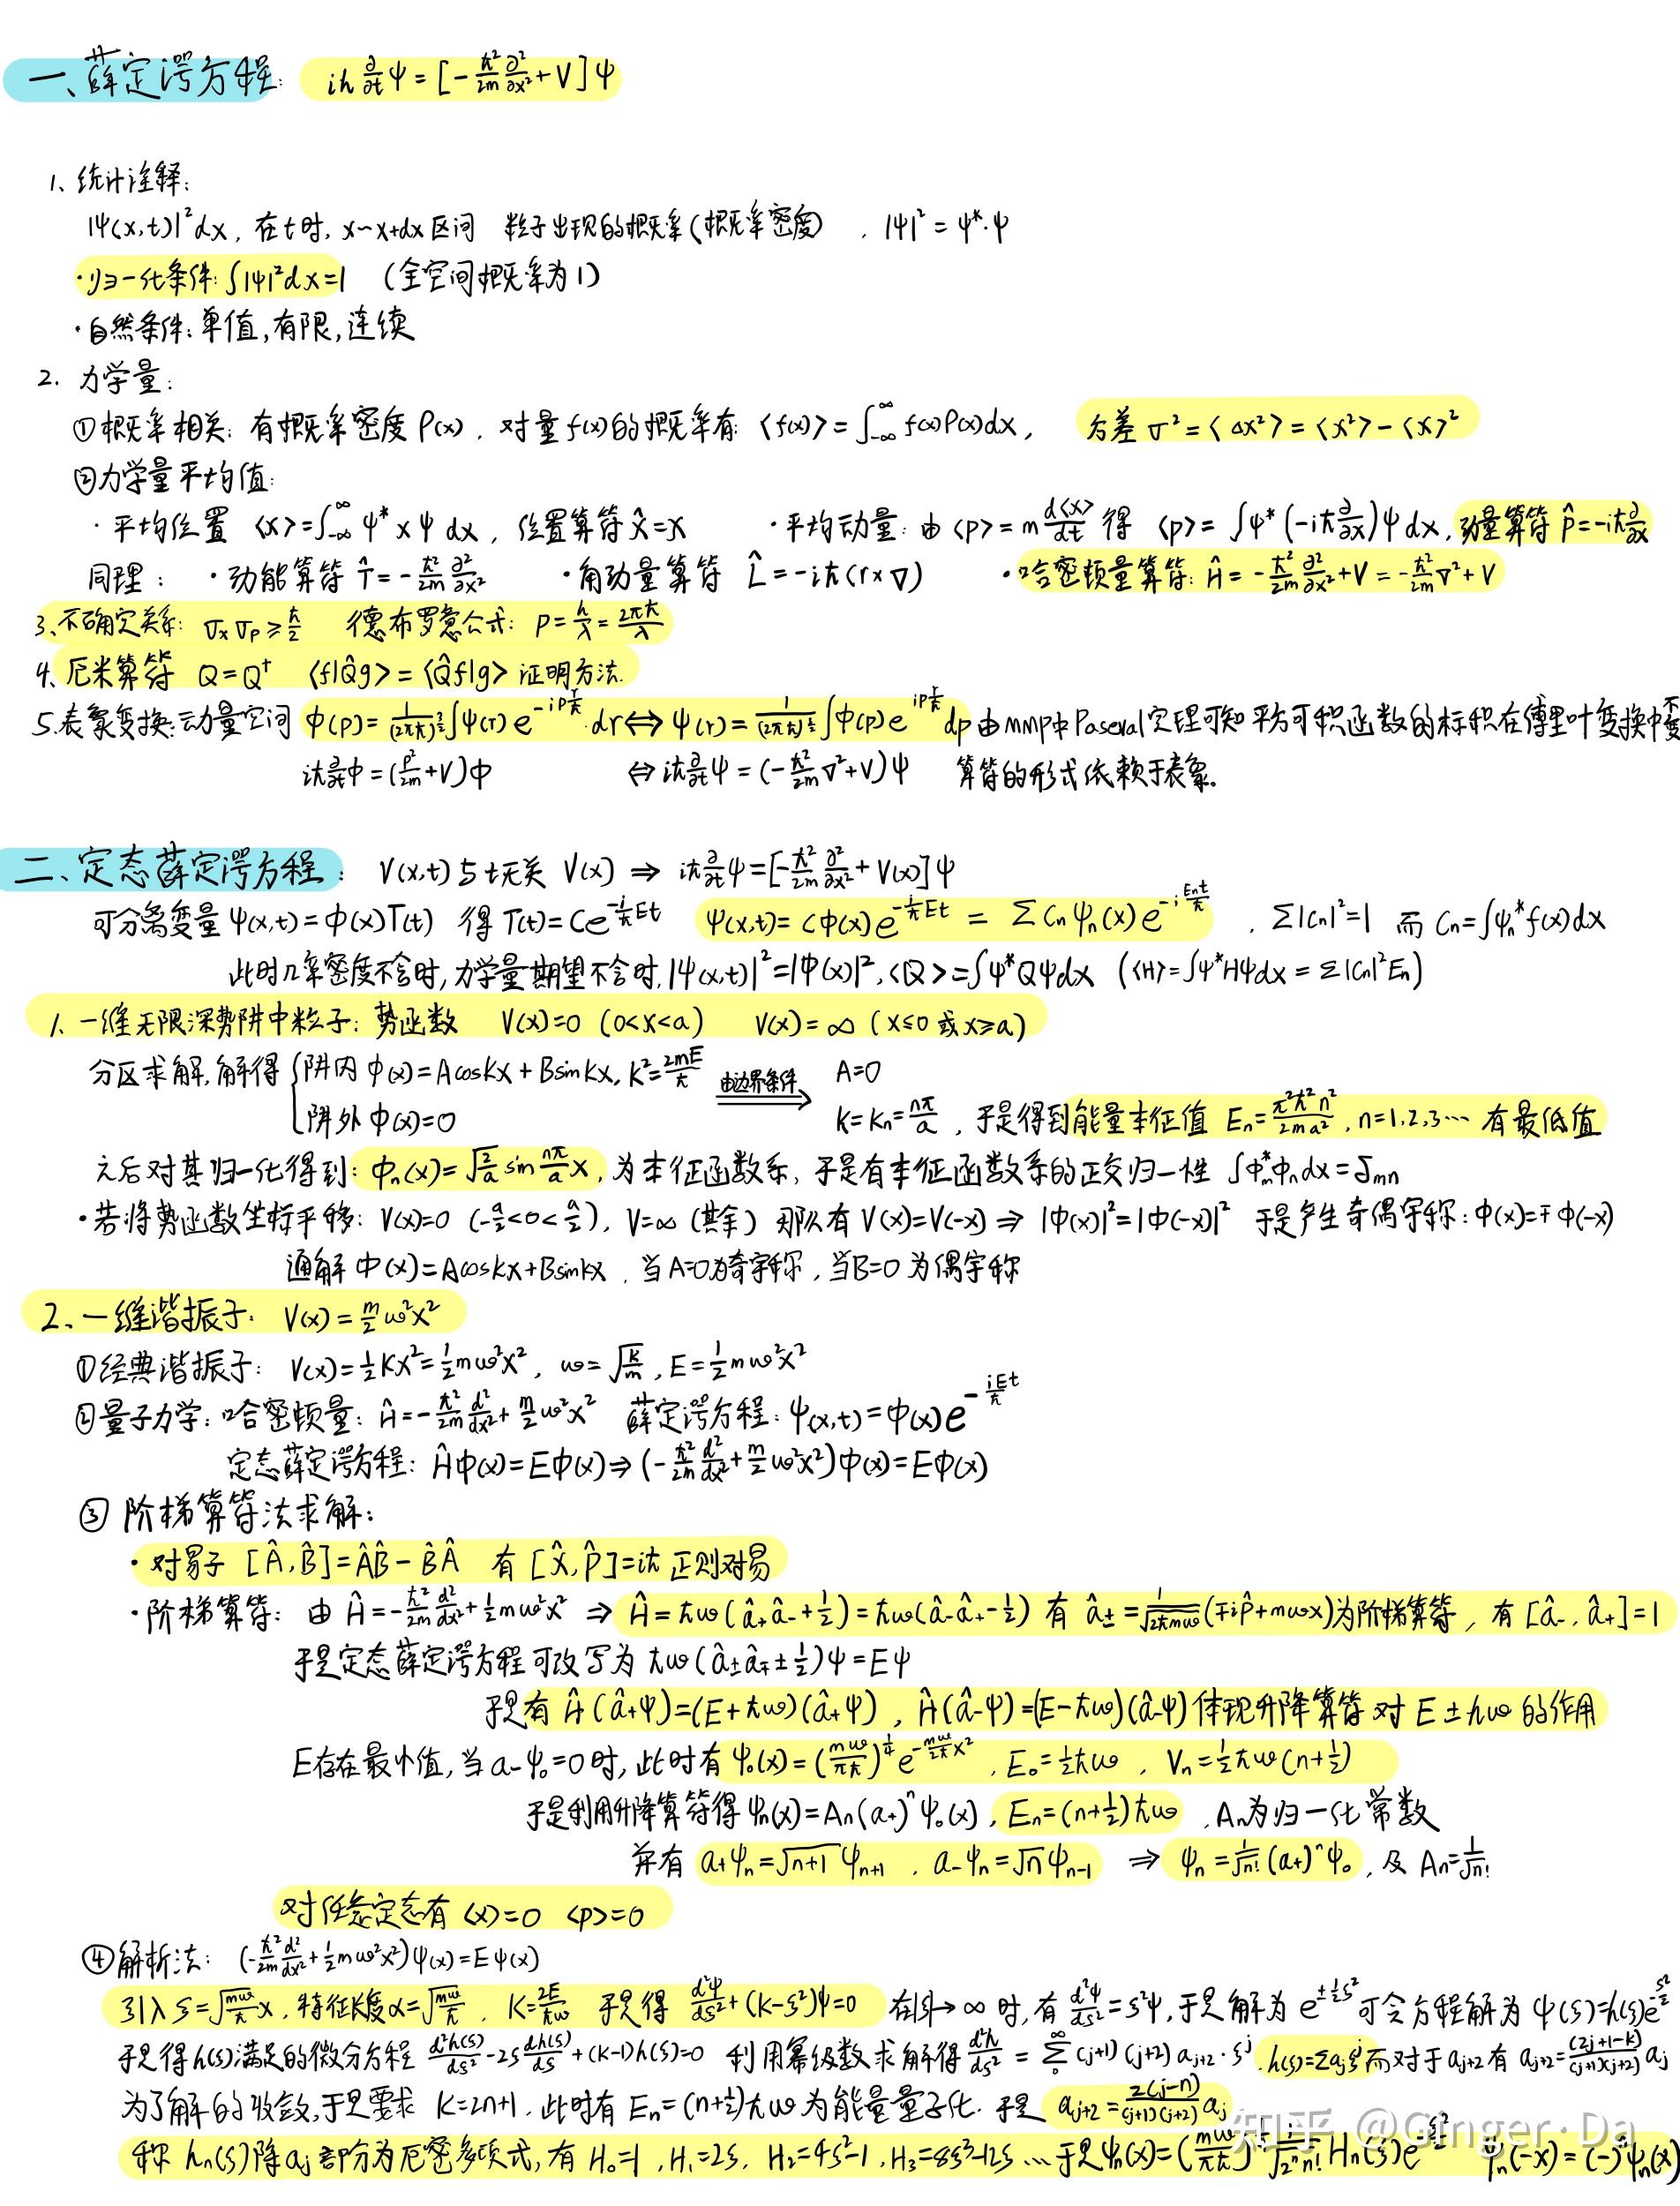 一、薛定谔方程: iℏ ∂/∂t ψ = [-ℏ²/2m ∂²/∂x² + V]ψ
1、统计诠释:
|ψ(x,t)|²dx, 在t时, x~x+dx区间 粒子出现的概率(概率密度), |ψ|² = ψ*·ψ
·归一化条件: ∫|ψ|²dx=1 (全空间概率为1)
·自然条件: 单值,有限,连续
2. 力学量:
①概率相关: 有概率密度 P(x), 对量f(x)的概率有: <f(x)> = ∫_{-∞}^{∞} f(x)P(x)dx, 方差 σ² = <Δx²> = <x²> - <x>²
②力学量平均值:
·平均位置 <x>=∫_{-∞}^{∞} ψ* x ψ dx, 位置算符 x̂=x ·平均动量: 由 <p> = m d<x>/dt 得 <p> = ∫ψ*(-iℏ ∂/∂x)ψ dx, 动量算符 p̂=-iℏ ∂/∂x
同理: ·动能算符 T̂ = -ℏ²/2m ∂²/∂x² ·角动量算符 L̂ = -iℏ(r×∇) ·哈密顿量算符: Ĥ = -ℏ²/2m ∂²/∂x² + V = -ℏ²/2m ∇² + V
3、不确定关系: σx σp ≥ ℏ/2 德布罗意公式: P = h/λ = 2πℏ/λ
4、厄米算符 Q = Q† <f|Q̂g> = <Q̂f|g> 证明方法.
5.表象变换:动量空间 Φ(p) = 1/(2πℏ)^{3/2} ∫ψ(r) e^{-ip r/ℏ} dr ⇔ ψ(r) = 1/(2πℏ)^{3/2} ∫Φ(p) e^{ip r/ℏ} dp 由mmp中Paseval定理可知 平方可积函数的标积在傅里叶变换中不变
iℏ ∂/∂t Φ = (p²/2m + V)Φ ⇔ iℏ ∂/∂t ψ = (-ℏ²/2m ∇² + V)ψ 算符的形式依赖于表象.
二、定态薛定谔方程: V(x,t)与t无关 V(x) ⇒ iℏ ∂/∂t ψ = [-ℏ²/2m ∂²/∂x² + V(x)]ψ
可分离变量 ψ(x,t) = Φ(x)T(t) 得 T(t) = Ce^{-i/ℏ Et} ψ(x,t) = cΦ(x)e^{-i/ℏ Et} = Σ Cn ψn(x) e^{-i Ent/ℏ}, Σ|Cn|²=1 而 Cn=∫ψn* f(x)dx
此时几率密度不含时,力学量期望不含时,|ψ(x,t)|²=|Φ(x)|², <Q> = ∫ψ*Qψdx (<H>=∫ψ*Hψdx = Σ|Cn|²En)
1、一维无限深势阱中粒子: 势函数 V(x)=0 (0<x<a) V(x) = ∞ (x≤0 或 x≥a)
分区求解,解得 { 阱内 Φ(x) = Acoskx + Bsinkx, k²=2mE/ℏ 由边界条件 ⇒ A=0
阱外 Φ(x)=0 k=kn=nπ/a, 于是得到能量本征值 En=π²ℏ²n²/2ma², n=1,2,3… 有最低值
之后对其归一化得到: Φn(x) = √(2/a) sin nπ/a x, 为本征函数系, 于是有本征函数系的正交归一性 ∫Φm*Φndx = δmn
·若将势函数坐标平移: V(x)=0 (-a/2<0<a/2), V=∞ (其余) 那么有 V(x)=V(-x) ⇒ |Φ(x)|²=|Φ(-x)|² 于是产生奇偶宇称: Φ(x)=∓Φ(-x)
通解 Φ(x)=Acoskx+Bsinkx, 当A=0为奇宇称, 当B=0 为偶宇称
2、一维谐振子: V(x) = m/2 ω²x²
①经典谐振子: V(x)=½Kx²=½mω²x², ω=√(k/m), E=½mω²x²
②量子力学: 哈密顿量: Ĥ=-ℏ²/2m d²/dx² + m/2 ω²x² 薛定谔方程: ψ(x,t)=Φ(x)e^{-iEt/ℏ}
定态薛定谔方程: ĤΦ(x)=EΦ(x) ⇒ (-ℏ²/2m d²/dx² + m/2 ω²x²)Φ(x)=EΦ(x)
③ 阶梯算符法求解:
·对易子 [Â,B̂]=ÂB̂-B̂Â 有 [x̂,p̂]=iℏ 正则对易
·阶梯算符: 由 Ĥ=-ℏ²/2m d²/dx²+½mω²x² ⇒ Ĥ=ℏω(â₊â₋+½)=ℏω(â₋â₊-½) 有 â±=1/√(2ℏmω)(∓ip̂+mωx)为阶梯算符, 有[â₋,â₊]=1
于是定态薛定谔方程可改写为 ℏω(â±â∓±½)ψ=Eψ
于是有 Ĥ(â₊ψ)=(E+ℏω)(â₊ψ), Ĥ(â₋ψ)=(E-ℏω)(â₋ψ)体现升降算符对 E±ℏω 的作用
E存在最小值,当a₋ψ₀=0时,此时有 ψ₀(x)=(mω/πℏ)^{1/4} e^{-mω/2ℏ x²}, E₀=½ℏω, Vn=½ℏω(n+½)
于是利用升降算符得 ψn(x)=An(a₊)ⁿψ₀(x), En=(n+½)ℏω, An为归一化常数
并有 a₊ψn=√(n+1) ψn+1, a₋ψn=√n ψn-1 ⇒ ψn=1/√n! (a₊)ⁿψ₀, 及 An=1/√n!
对任意定态有 <x>=0 <p>=0
④解析法: (-ℏ²/2m d²/dx²+½mω²x²)ψ(x)=Eψ(x)
引入 ξ=√(mω/ℏ) x, 特征长度α=√(mω/ℏ), K=2E/ℏω 于是得 d²ψ/dξ²+(K-ξ²)ψ=0 在|ξ|→∞ 时,有 d²ψ/dξ²=ξ²ψ,于是解为 e^{±½ξ²} 可令方程解为 ψ(ξ)=h(ξ)e^{-ξ²/2}
于是得h(ξ)满足的微分方程 d²h(ξ)/dξ²-2ξ dh(ξ)/dξ+(K-1)h(ξ)=0 利用幂级数求解得 d²h/dξ² = Σ₀^∞ (j+1)(j+2)aj+2·ξʲ, h(ξ)=Σajξʲ 而对于aj+2有 aj+2=(2j+1-k)/(j+1)(j+2) aj
为了解的收敛,于是要求 K=2n+1, 此时有 En=(n+½)ℏω 为能量量子化. 于是 aj+2=2(j-n)/(j+1)(j+2) aj
称 hn(ξ)除aj部分为厄密多项式,有 H₀=1, H₁=2ξ, H₂=4ξ²-1, H₃=8ξ³-12ξ … 于是ψn(x)=(mω/πℏ)^{1/4} 1/√(2ⁿn!) Hn(ξ)e^{-ξ²/2} ψn(-x)=(-)ⁿψn(x)
知乎 @Ginger·Da